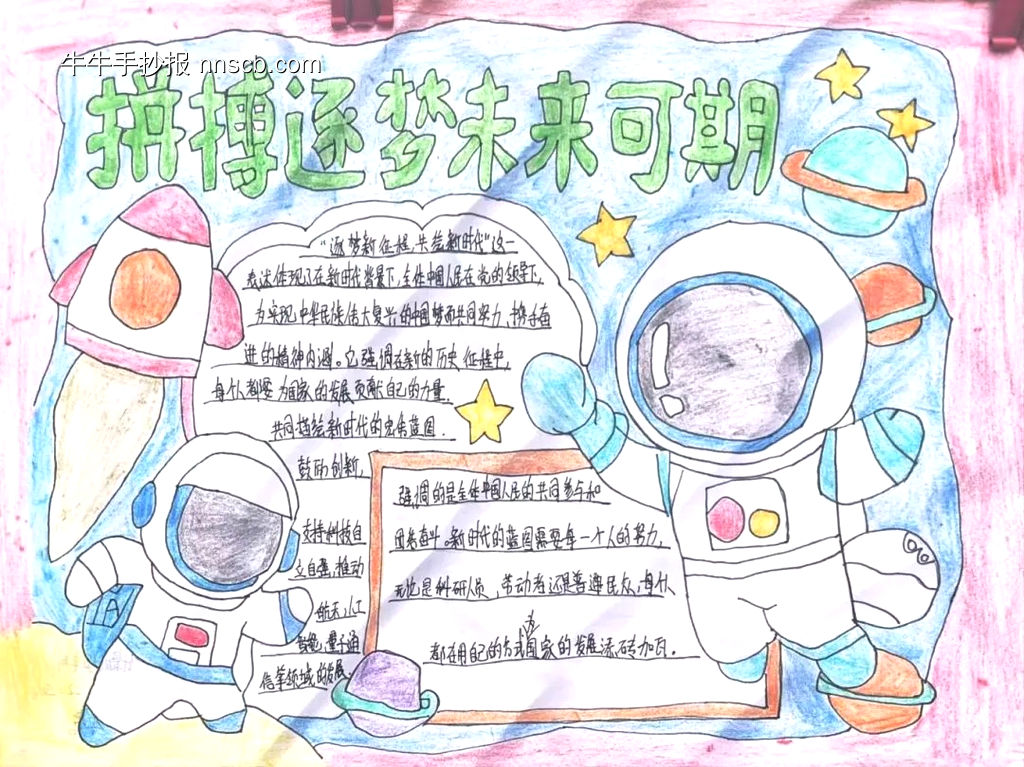 牛牛手抄报 nnscb.com
拼搏逐梦未来可期
“逐梦新征程,共绘新时代”这一
表述体现了在新时代背景下,全体中国人民在党的领导下,
为实现中华民族伟大复兴的中国梦而共同努力、携手奋
进的精神内涵。它强调在新的历史征程中,
每个人都要为国家的发展贡献自己的力量,
共同描绘新时代的宏伟蓝图.
鼓励创新,
支持科技自
立自强,推动
航天、人工
智能,量子通
信等领域的发展.
强调的是全体中国人民的共同参与和
团结奋斗。新时代的蓝图需要每一个人的努力,
无论是科研人员,劳动者还是普通民众,每个人
都在用自己的方式为国家的发展添砖加瓦.